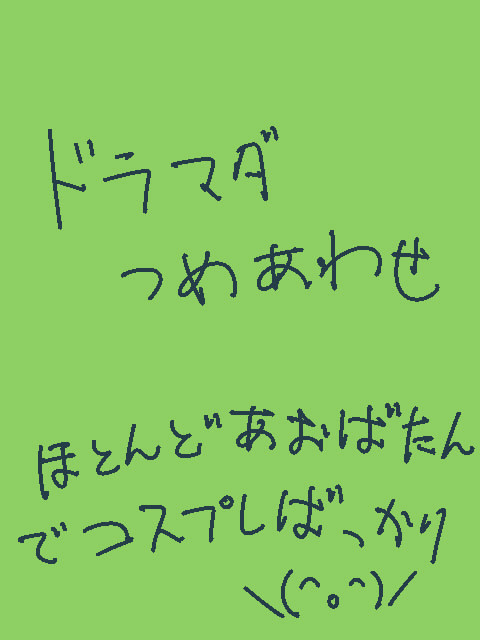 ドラマダ
つめあわせ
ほとんどあおばたん
でコスプレばっかり
＼(^o^)／